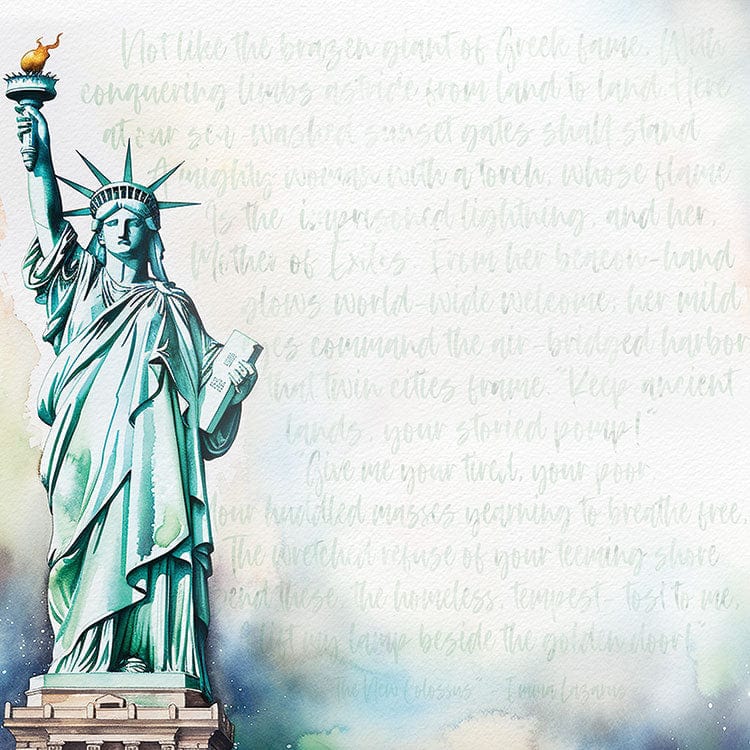 Not like the brazen giant of Greek fame, With
conquering limbs astride from land to land Here
at our sea-washed sunset gates shall stand
A mighty woman with a torch, whose flame
Is the imprisoned lightning, and her,
Mother of Exiles. From her beacon-hand
glows world-wide welcome; her mild
yes command the air-bridged harbor
that twin cities frame. "Keep ancient
lands, your storied pomp!"
"Give me your tired, your poor,
Your huddled masses yearning to breathe free,
The wretched refuse of your teeming shore
end these, the homeless, tempest-tost to me,
lift my lamp beside the golden door!"
"The New Colossus" - Emma Lazarus